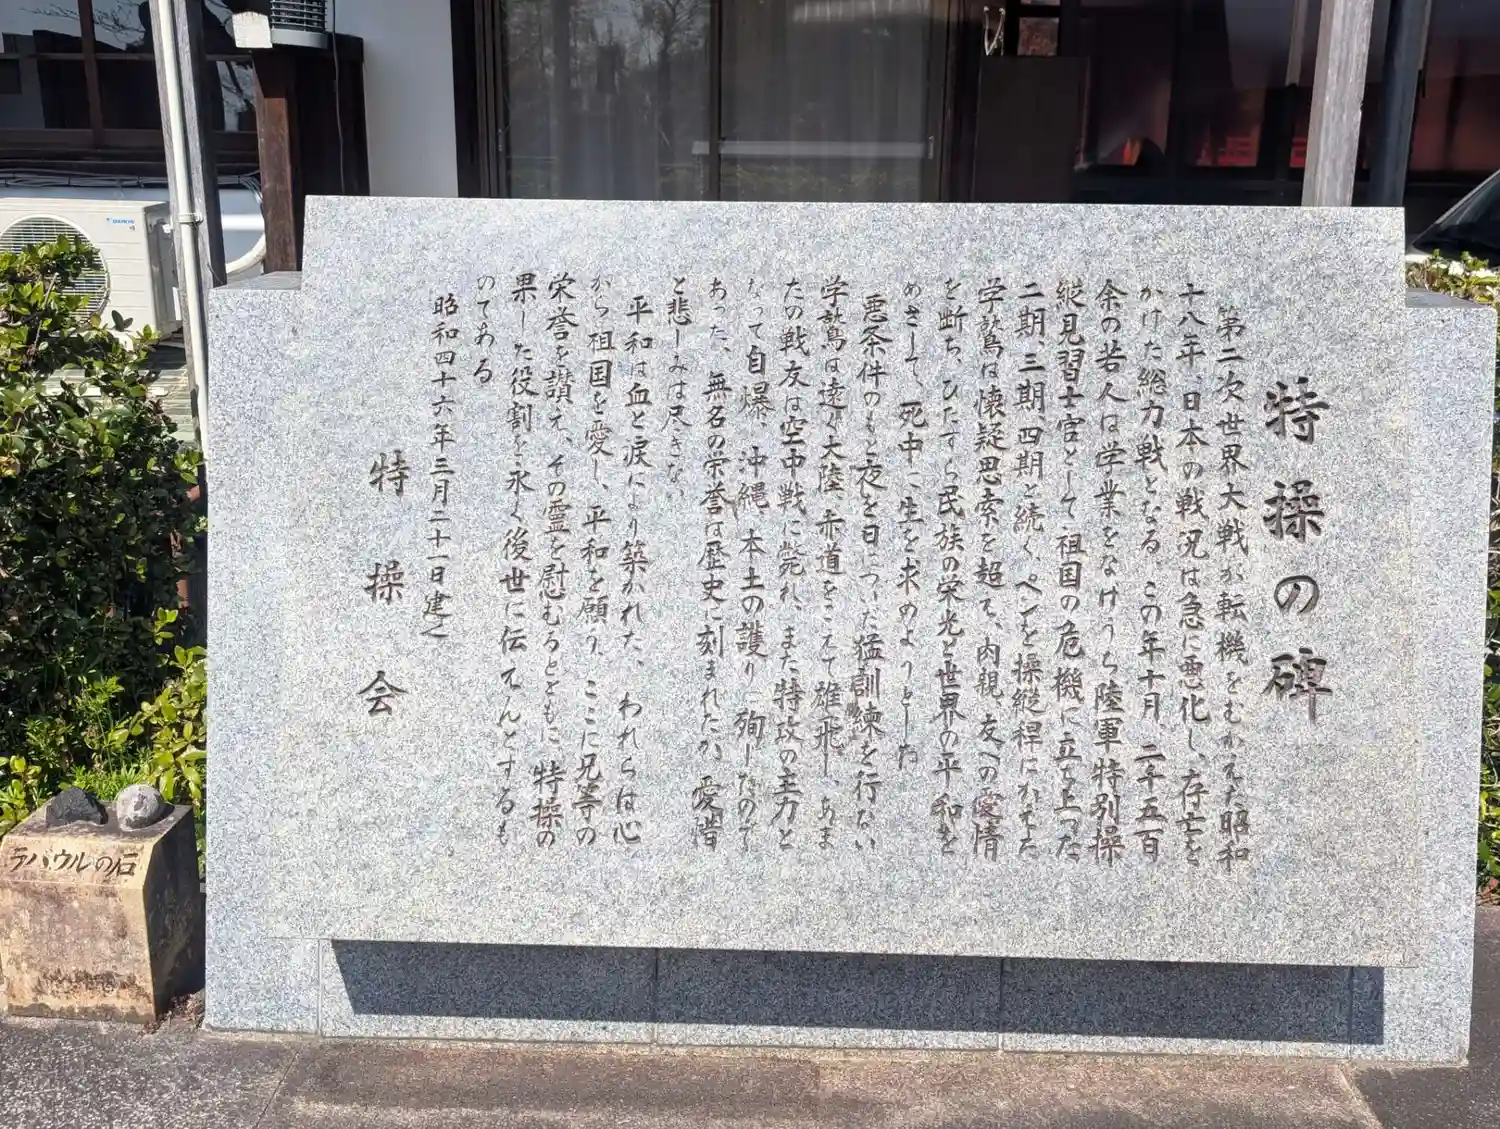 特操の碑
第二次世界大戦が転機をむかえた昭和
十八年、日本の戦況は急に悪化し、存亡を
かけた総力戦となる。この年十月、二千五百
余の若人は学業をなげうち陸軍特別操
縦見習士官として祖国の危機に立ち上った
二期、三期、四期と続く、ペンを操縦桿にかえた
学鷲は懐疑思索を超て、肉親、友への愛情
を断ち、ひたすら民族の栄光と世界の平和を
めざして、死中に生を求めようとした
悪条件のもと夜を日についだ猛訓練を行ない
学鷲は遠く大陸、赤道をこえて雄飛し、あま
たの戦友は空中戦に斃れ、また特攻の主力と
なって自爆、沖縄、本土の護りに殉じたので
あった、無名の栄誉は歴史に刻まれたが、愛惜
と悲しみは尽きない
平和は血と涙により築かれた、われらは心
から祖国を愛し、平和を願う、ここに兄等の
栄誉を讃え、その霊を慰むるとともに、特操の
果した役割を永く後世に伝えんとするも
のである
昭和四十六年三月二十一日建之
特操会
ラバウルの石
DAIKIN